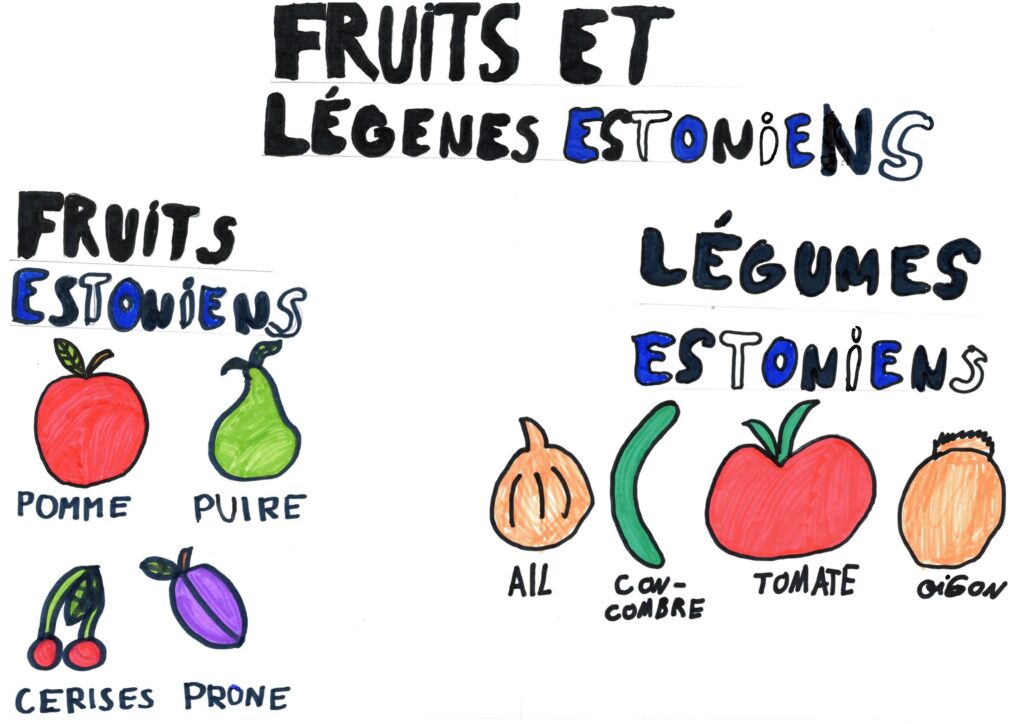 FRUiTS ET
LÉGENES ESTONiENS
FRUiTS
ESTONiENS
POMME
PUIRE
CERISES
PRONE
LÉGUMES
ESTONiENS
AIL
CON-
COMBRE
TOMATE
OIGON